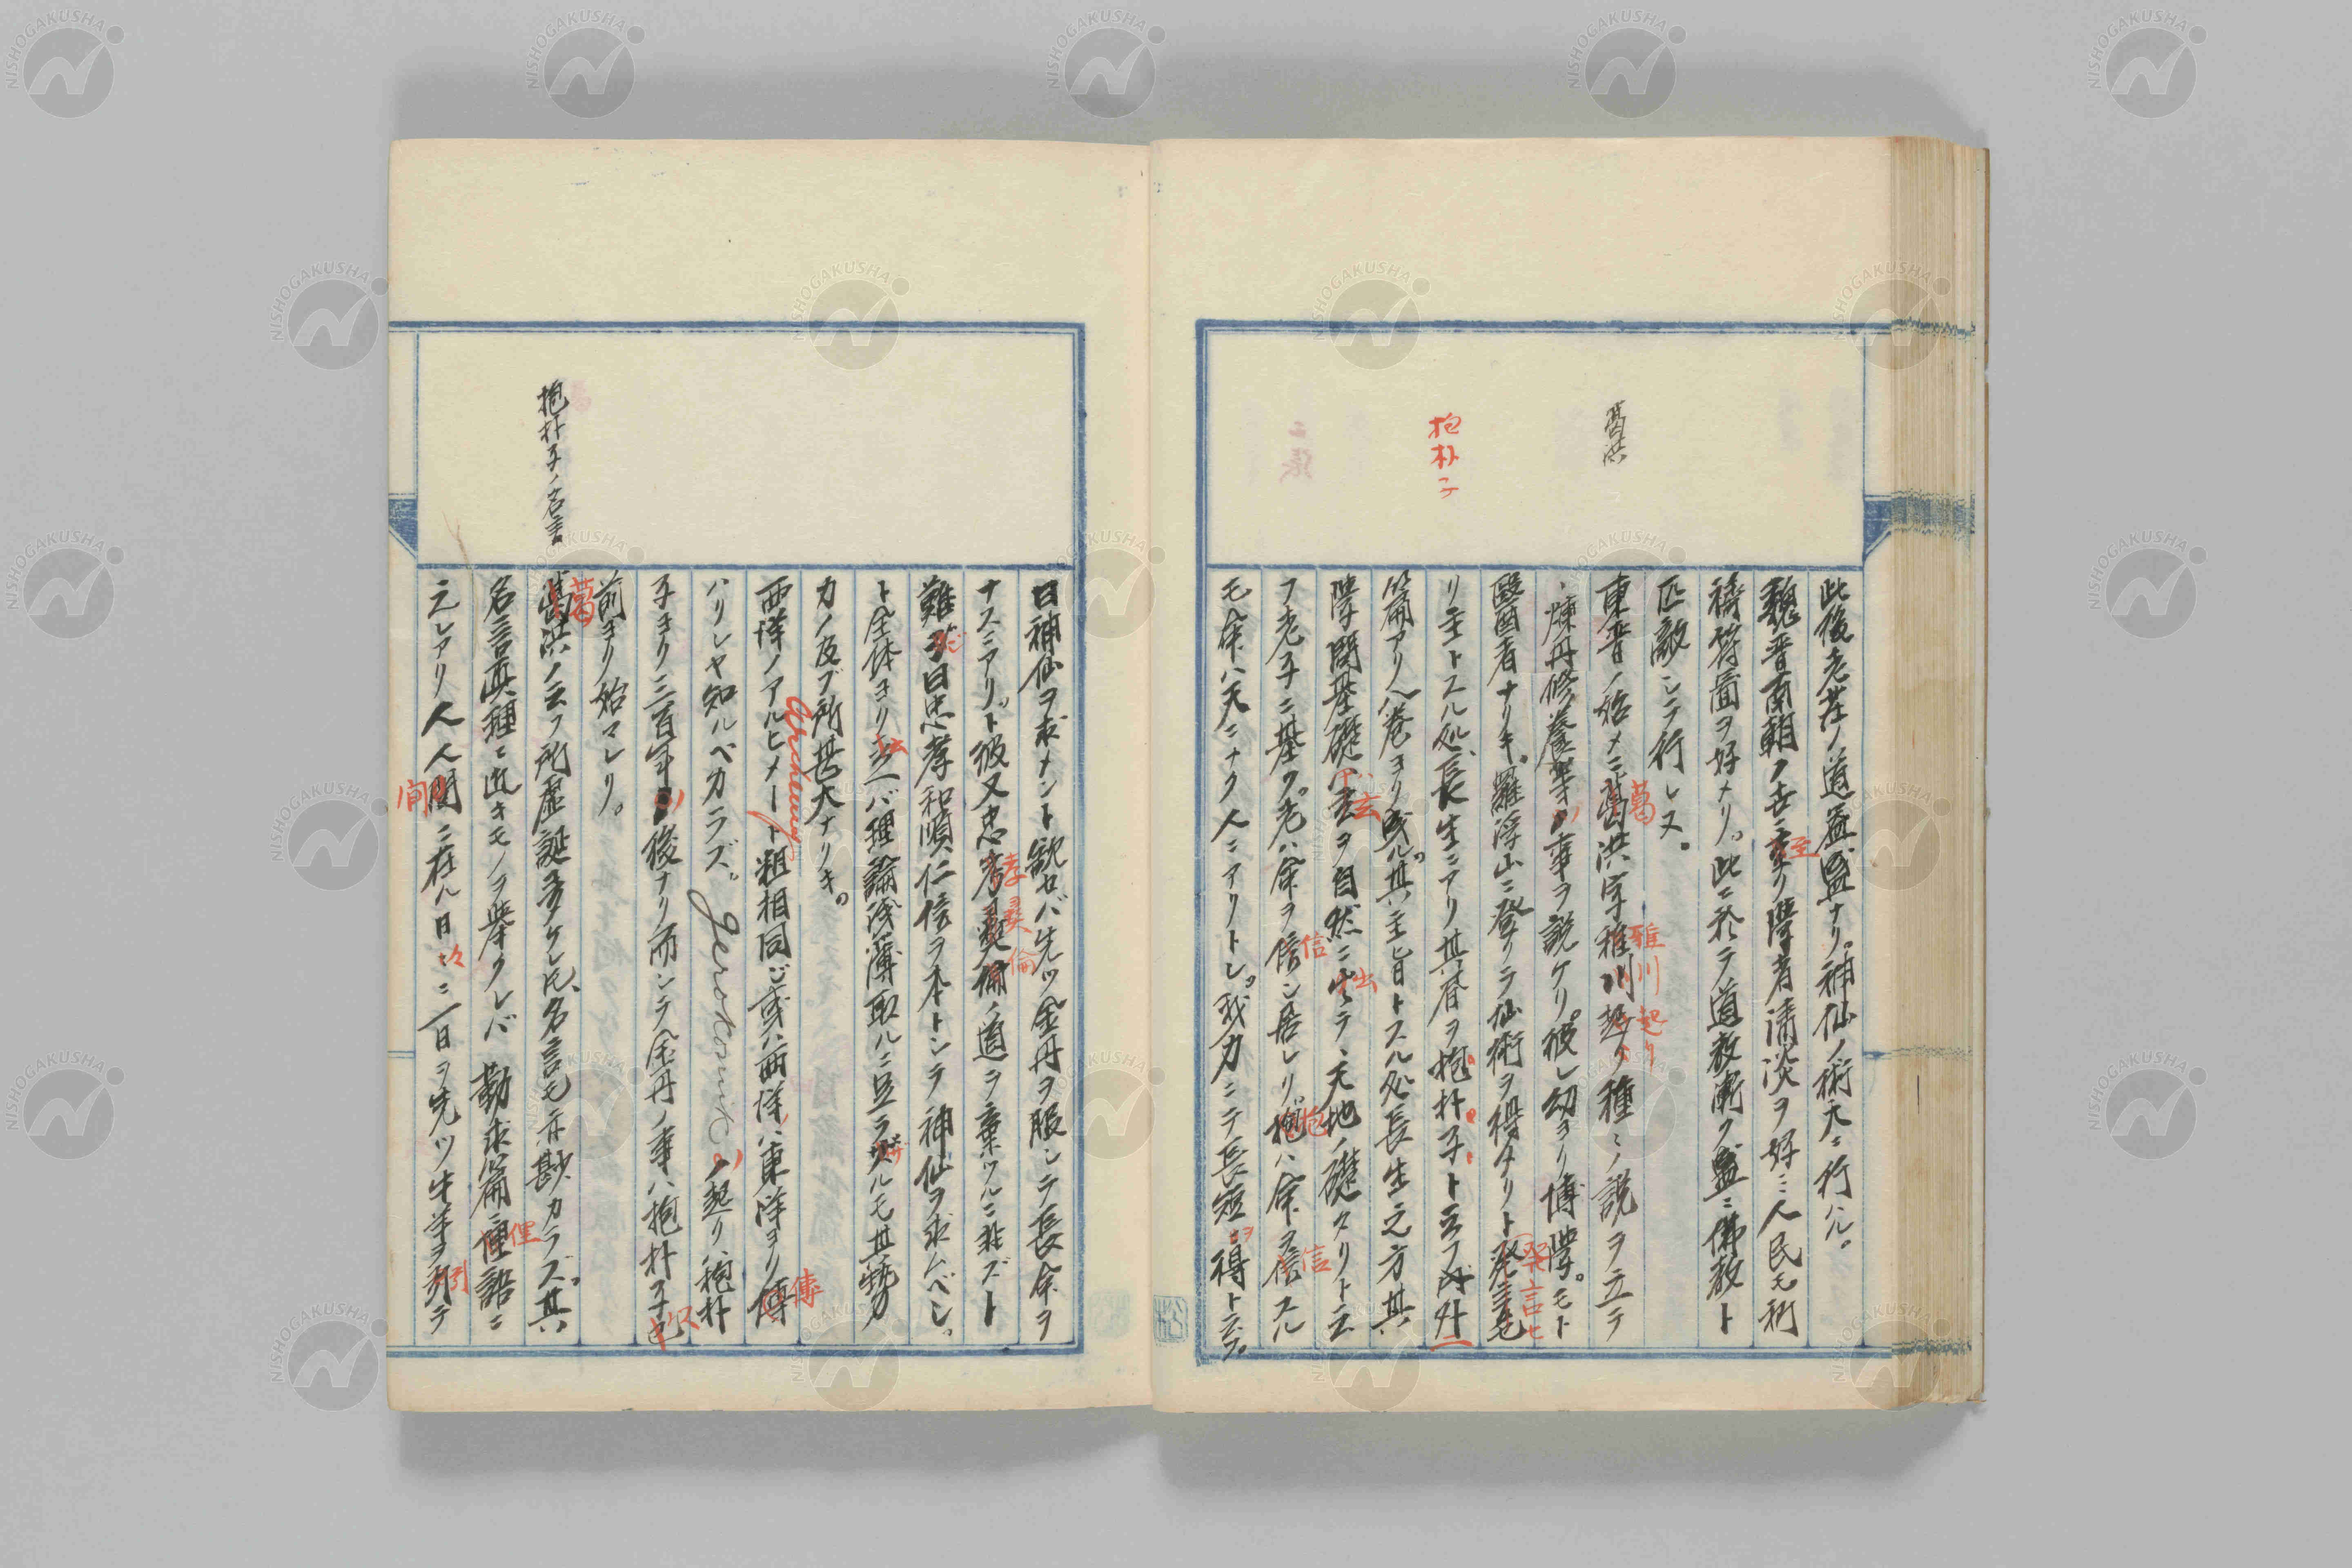 葛洪
抱朴子
此後老荘ノ道益盛ナリ。神仙ノ術大ニ行ハル。
魏晋南朝ノ世ニ至リ學者清淡ヲ好ミ人民モ祈
禱符圖ヲ好メリ。此ニ於テ道教漸ク盛ニ佛教ト
匹敵シテ行レヌ。
東晋ノ始メニ葛洪字雅川起リ種々ノ説ヲ立テ
、煉丹修養等ノ事ヲ説ケリ。彼レ幼ヨリ博學。モト
醫者ナリキ。羅浮山ニ登リテ仙術ヲ得タリト発言セ
リ主トスル処、長生ニアリ其書ヲ抱朴子ト云フ内外二
篇アリ八巻ヨリ成ル。其主旨トスル処長生之方其
學問基礎ハ玄ヲ自然ニ出テ、天地ノ礎タリト云
フ老子ニ基ク。老ハ命ヲ信シ居レリ。抱ハ命ヲ信スル
モ命ハ天ニナク人ニアリトシ。我力ニテ長短ヲ得ト云フ。
抱朴子ノ名言
曰神仙ヲ求メント欲セバ先ツ金丹ヲ服シテ長命ヲ
ナスニアリ。ト彼又忠孝彛倫ノ道ヲ棄ツルニ非ズト
難ジ曰忠孝和順仁信ヲ本トシテ神仙ヲ求ムベシ。
ト全体ヨリ云ヘバ理論浅薄取ルニ足ラザルモ其勢
力ノ及ブ所甚大ナリキ。
西洋ノアルヒメート粗相同ジ或ハ西洋ハ東洋ヨリ傳
ハリシヤ知ルベカラズ。ノ起リハ抱朴
子ヨリ三百年ノ後ナリ而シテ金丹ノ事ハ抱朴子以
前ヨリ始マレリ。
葛洪ノ云フ所虚誕多ケレ𪜈名言モ亦尠カラズ。其
名言眞理ニ近キモノヲ挙クレバ 勤求篇ニ俚語ニ
之レアリ人人間ニ在ル日々ニ一日ヲ失ツ牛羊ヲ引テ